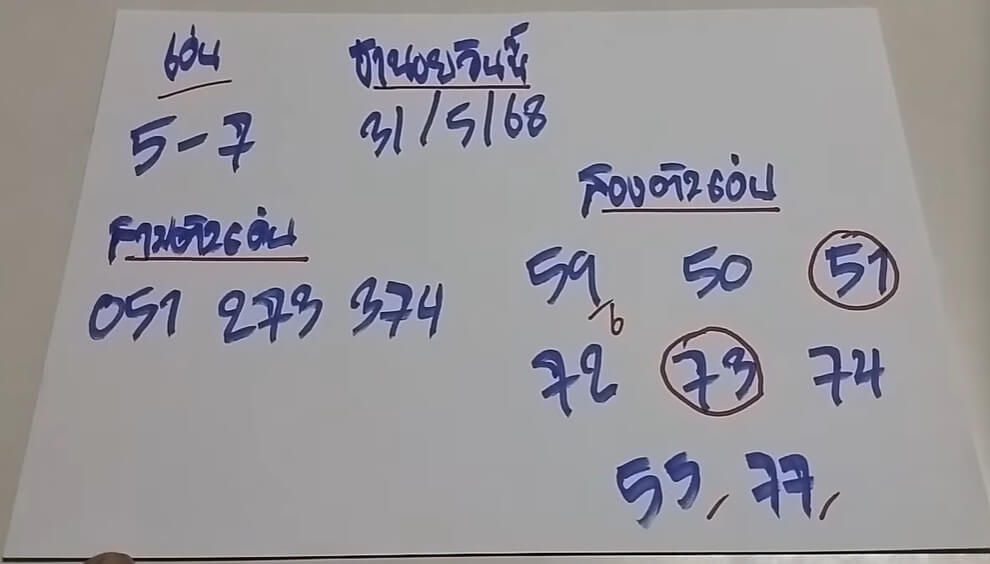 เด่น
5-7
ฮานอยวันนี้
31/5/68
สามตัวเด่น
051 273 374
สองตัวเด่น
59 50 51
6
72 73 74
55, 77,